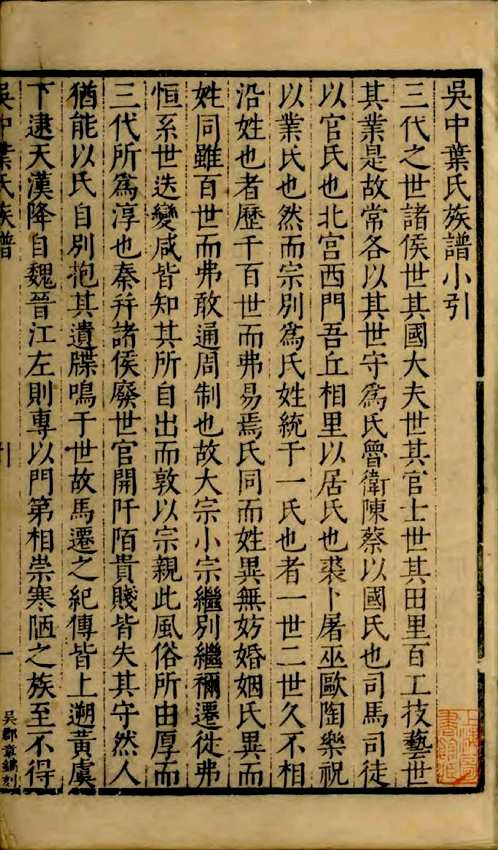 吳中葉氏族譜小引
三代之世諸侯世其國大夫世其官士世其田里百工技藝世
其業是故常各以其世守爲氏魯衛陳蔡以國氏也司馬司徒
以官氏也北宮西門吾丘相里以居氏也裘卜屠巫歐陶樂祝
以業氏也然而宗別爲氏姓統于一氏也者一世二世久不相
沿姓也者歷千百世而弗易焉氏同而姓異無妨婚姻氏異而
姓同雖百世而弗敢通周制也故大宗小宗繼別繼禰遷徙弗
恒系世迭變咸皆知其所自出而敦以宗親此風俗所由厚而
三代所爲淳也秦并諸侯廢世官開阡陌貴賤皆失其守然人
猶能以氏自別抱其遺牒鳴于世故馬遷之紀傳皆上遡黃虞
下逮天漢降自魏晉江左則專以門第相崇寒陋之族至不得
吳中葉氏族譜
引
一